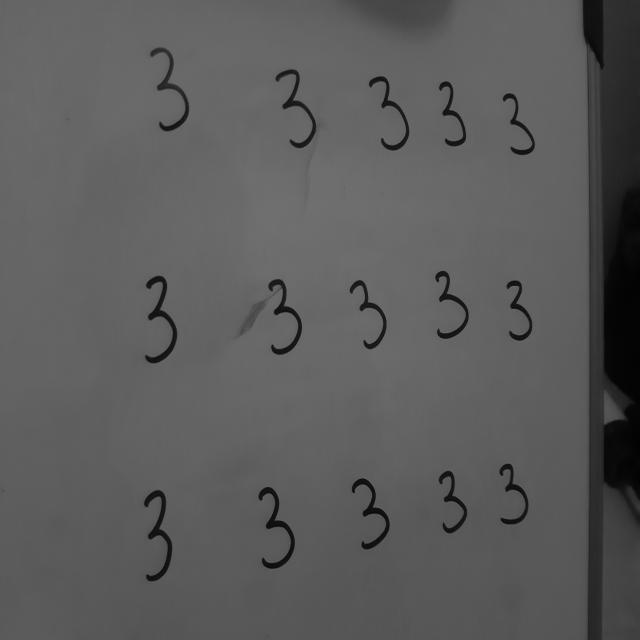 3 3 3 3 3
3 3 3 3 3
3 3 3 3 3